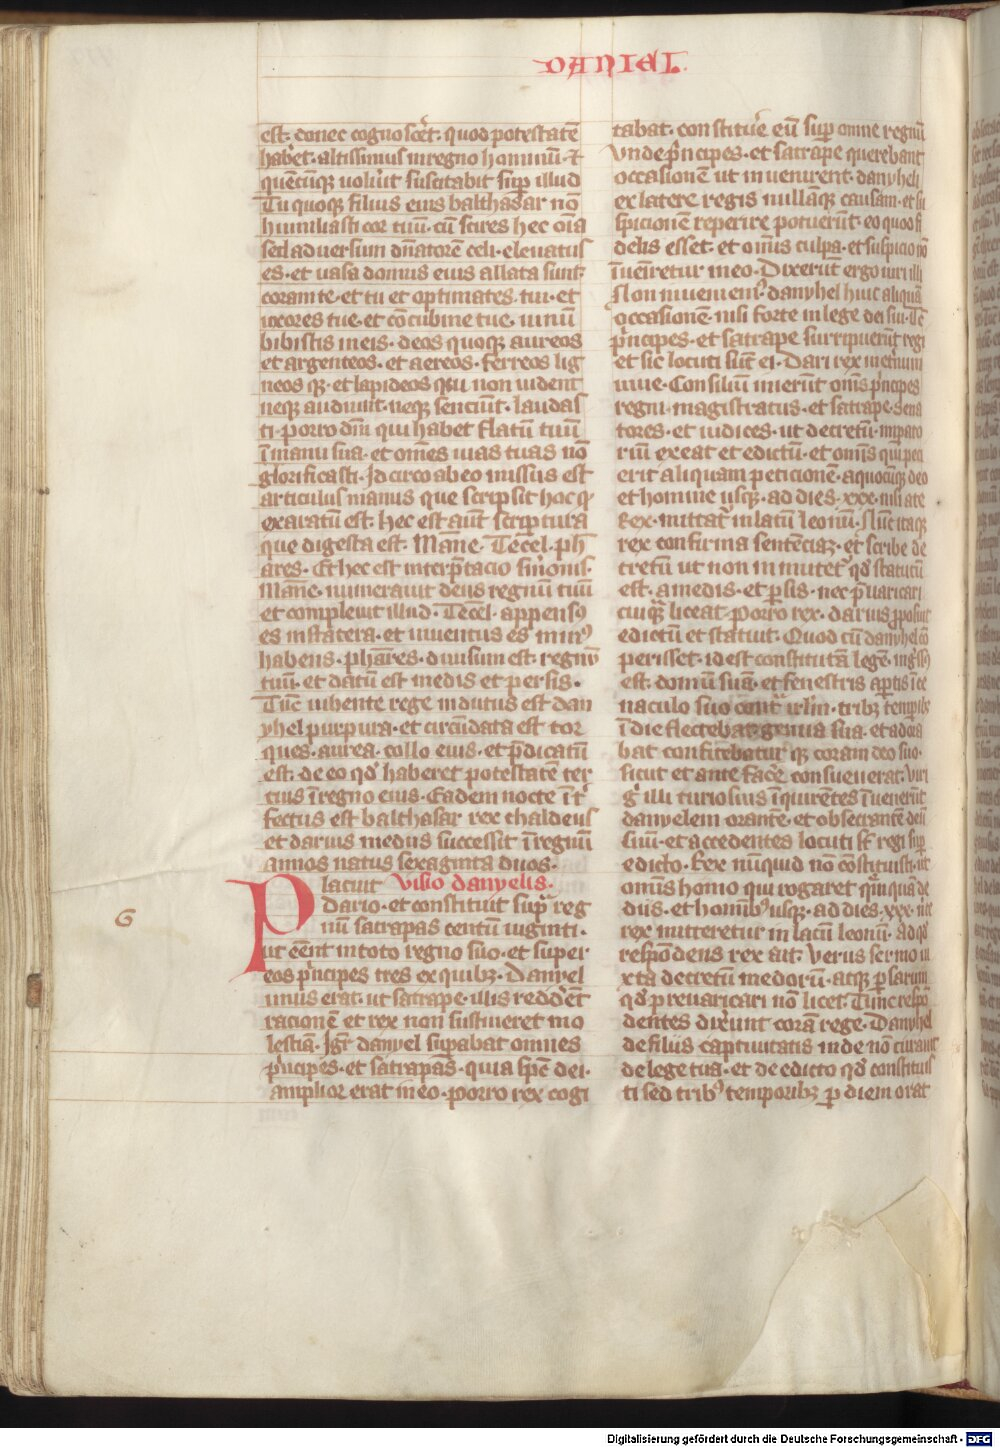 DANIEL.
est. donec cognosceret. quod potestatē
haberet. altissimus in regno hominū. et
quēcūqꝫ voluerit suscitabit sup illud
Tu quoqꝫ filius eius balthasar nō
humiliasti cor tuū. cū scires hec oīa
sed adversum dn̄atorē celi. elevatus
es. et vasa domus eius allata sunt
coram te. et tu et optimates tui. et
uxores tue. et cōcubine tue. vinū
bibistis in eis. deos quoqꝫ aureos
et argenteos. et aereos. ferreos lig
neos qꝫ. et lapideos qui non vident
neqꝫ audiunt. neqꝫ senciūt. laudas
ti. porro dm̄ qui habet flatū tuū
ī manu sua. et omēs vias tuas nō
glorificasti. Idcirco ab eo missus est
articulus manus que scripsit hoc qd
exaratū est. hec est aūt scriptura
que digesta est. Māne. Techel. ph
ares. Et hec est interp̄tacio sermonis.
Māne. numeravit deus regnū tuū
et complevit illud. Techel. appensus
es in statera. et inventus es minus
habens. phares. divisum est regnū
tuū. et datū est medis et persis.
Tūc iubente rege indutus est dan
yhel purpura. et circūdata est tor
ques. aurea. collo eius. et p̄dicatū
est. de eo qd haberet potestatē ter
cius ī regno eius. Eadem nocte īt
fectus est balthasar rex chaldeus
et darius medus successit ī regnū
annos natus sexaginta duos.
Placuit Visio danyelis.
dario. et constituit supra reg
nū satrapas centū viginti.
ut eēnt in toto regno suo. et super
eos p̄ncipes tres ex quibꝫ. Danyel
unus erat. ut satrape. illis reddēt
racionē et rex non sustineret mo
lestiā. Igr̄ danyel supabat omnes
p̄ncipes. et satrapas. quia spc̄ dei.
amplior erat in eo. porro rex cogi
tabat. constituere eū sup omne regnū
Unde p̄ncipes. et satrape querebant
occasionē ut invenirent. danyheli
ex latere regis nullāqꝫ causam. et su
spicionē reperire potuerūt. eo quod fi
delis esset. et omīs culpa. et suspicio nō
īveniretur in eo. Dixerūt ergo viri illi
Non inveniemus danyhel huic aliquā
occasionē. nisi forte in lege dei sui. Tc̄
p̄ncipes. et satrape surripuerūt regi
et sic locuti sūt ei. Dari rex ineternum
vive. Consiliū inierūt omīs p̄ncipes
regni. magistratus. et satrape. Sena
tores. et iudices. ut decretū. impato
riū exeat et edictū. et omīs qui peci
erit aliquam peticionē. a quocūqꝫ deo
et homine usqꝫ. ad dies. xxx. nisi a te
Rex. mittatur in lacū leonū. Nūc itaqꝫ
rex confirma sentenciaꝫ. et scribe de
cretū ut non inmutetur qd statutū
est. a medis. et persis. nec p̄varicari
cuiquā liceat. Porro rex. darius pposuit
edictū et statuit. Quod cū danyhel cō
perisset. id est constitutā legē. ingressus
est. domū suā. et fenestris apertis ī ce
naculo suo contra irl̄m. tribꝫ temporibꝫ
ī die flectebat genua sua. et adora
bat confitebatur qꝫ coram deo suo.
sicut et ante facere consueverat. Viri
g illi curiosius īquirētes īvenerūt
danyelem orantē. et obsecrantē deū
suū. et accedentes locuti sūt regi sup
edicto. Rex nūquid nō cōstituisti. ut
omīs homo qui rogaret quēquā de
diis. et hominibus usqꝫ. ad dies. xxx. nisi te
rex mitteretur in lacū leonū. ad qd
respōdens rex ait. Verus sermo iu
xta decretū medorū. atqꝫ persarum
qd prevaricari nō licet. Tunc respō
dentes dixerunt corā rege. Danyhel
de filiis captivitatis iude nō curavit
de lege tua. et de edicto qd constituis
ti sed tribus temporibꝫ per diem orat
6
Digitalisierung gefördert durch die Deutsche Forschungsgemeinschaft - DFG